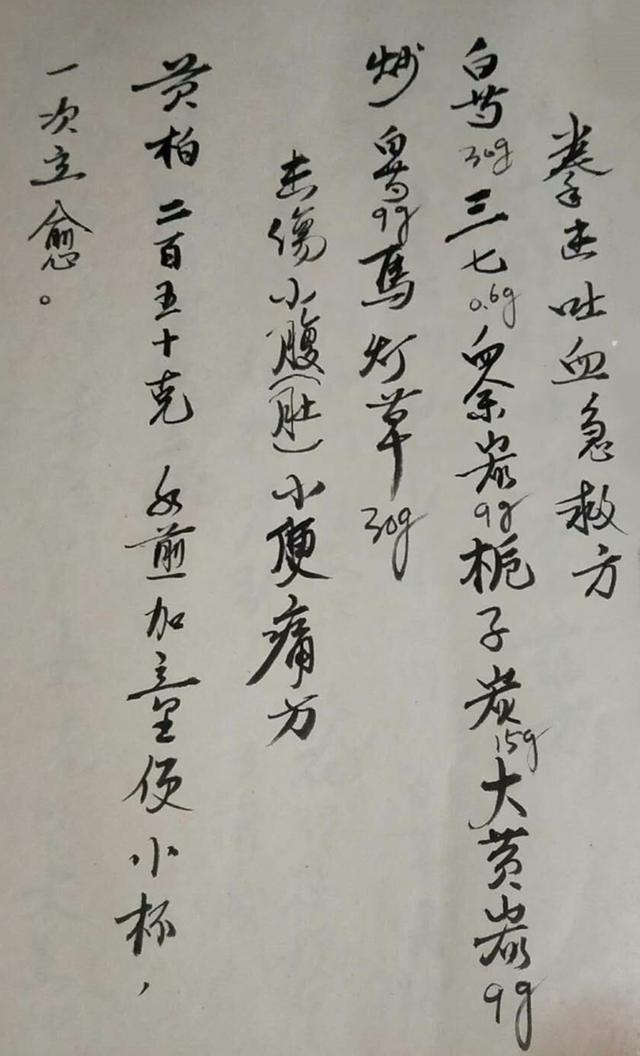 拳击吐血急救方
白芍30g三七0.6g血余炭9g栀子炭15g大黄炭9g
炒白芍9g马灯草30g
击傷小腹(肚)小便痛方
黄柏二百五十克 水煎加童便小杯，
一次立愈。